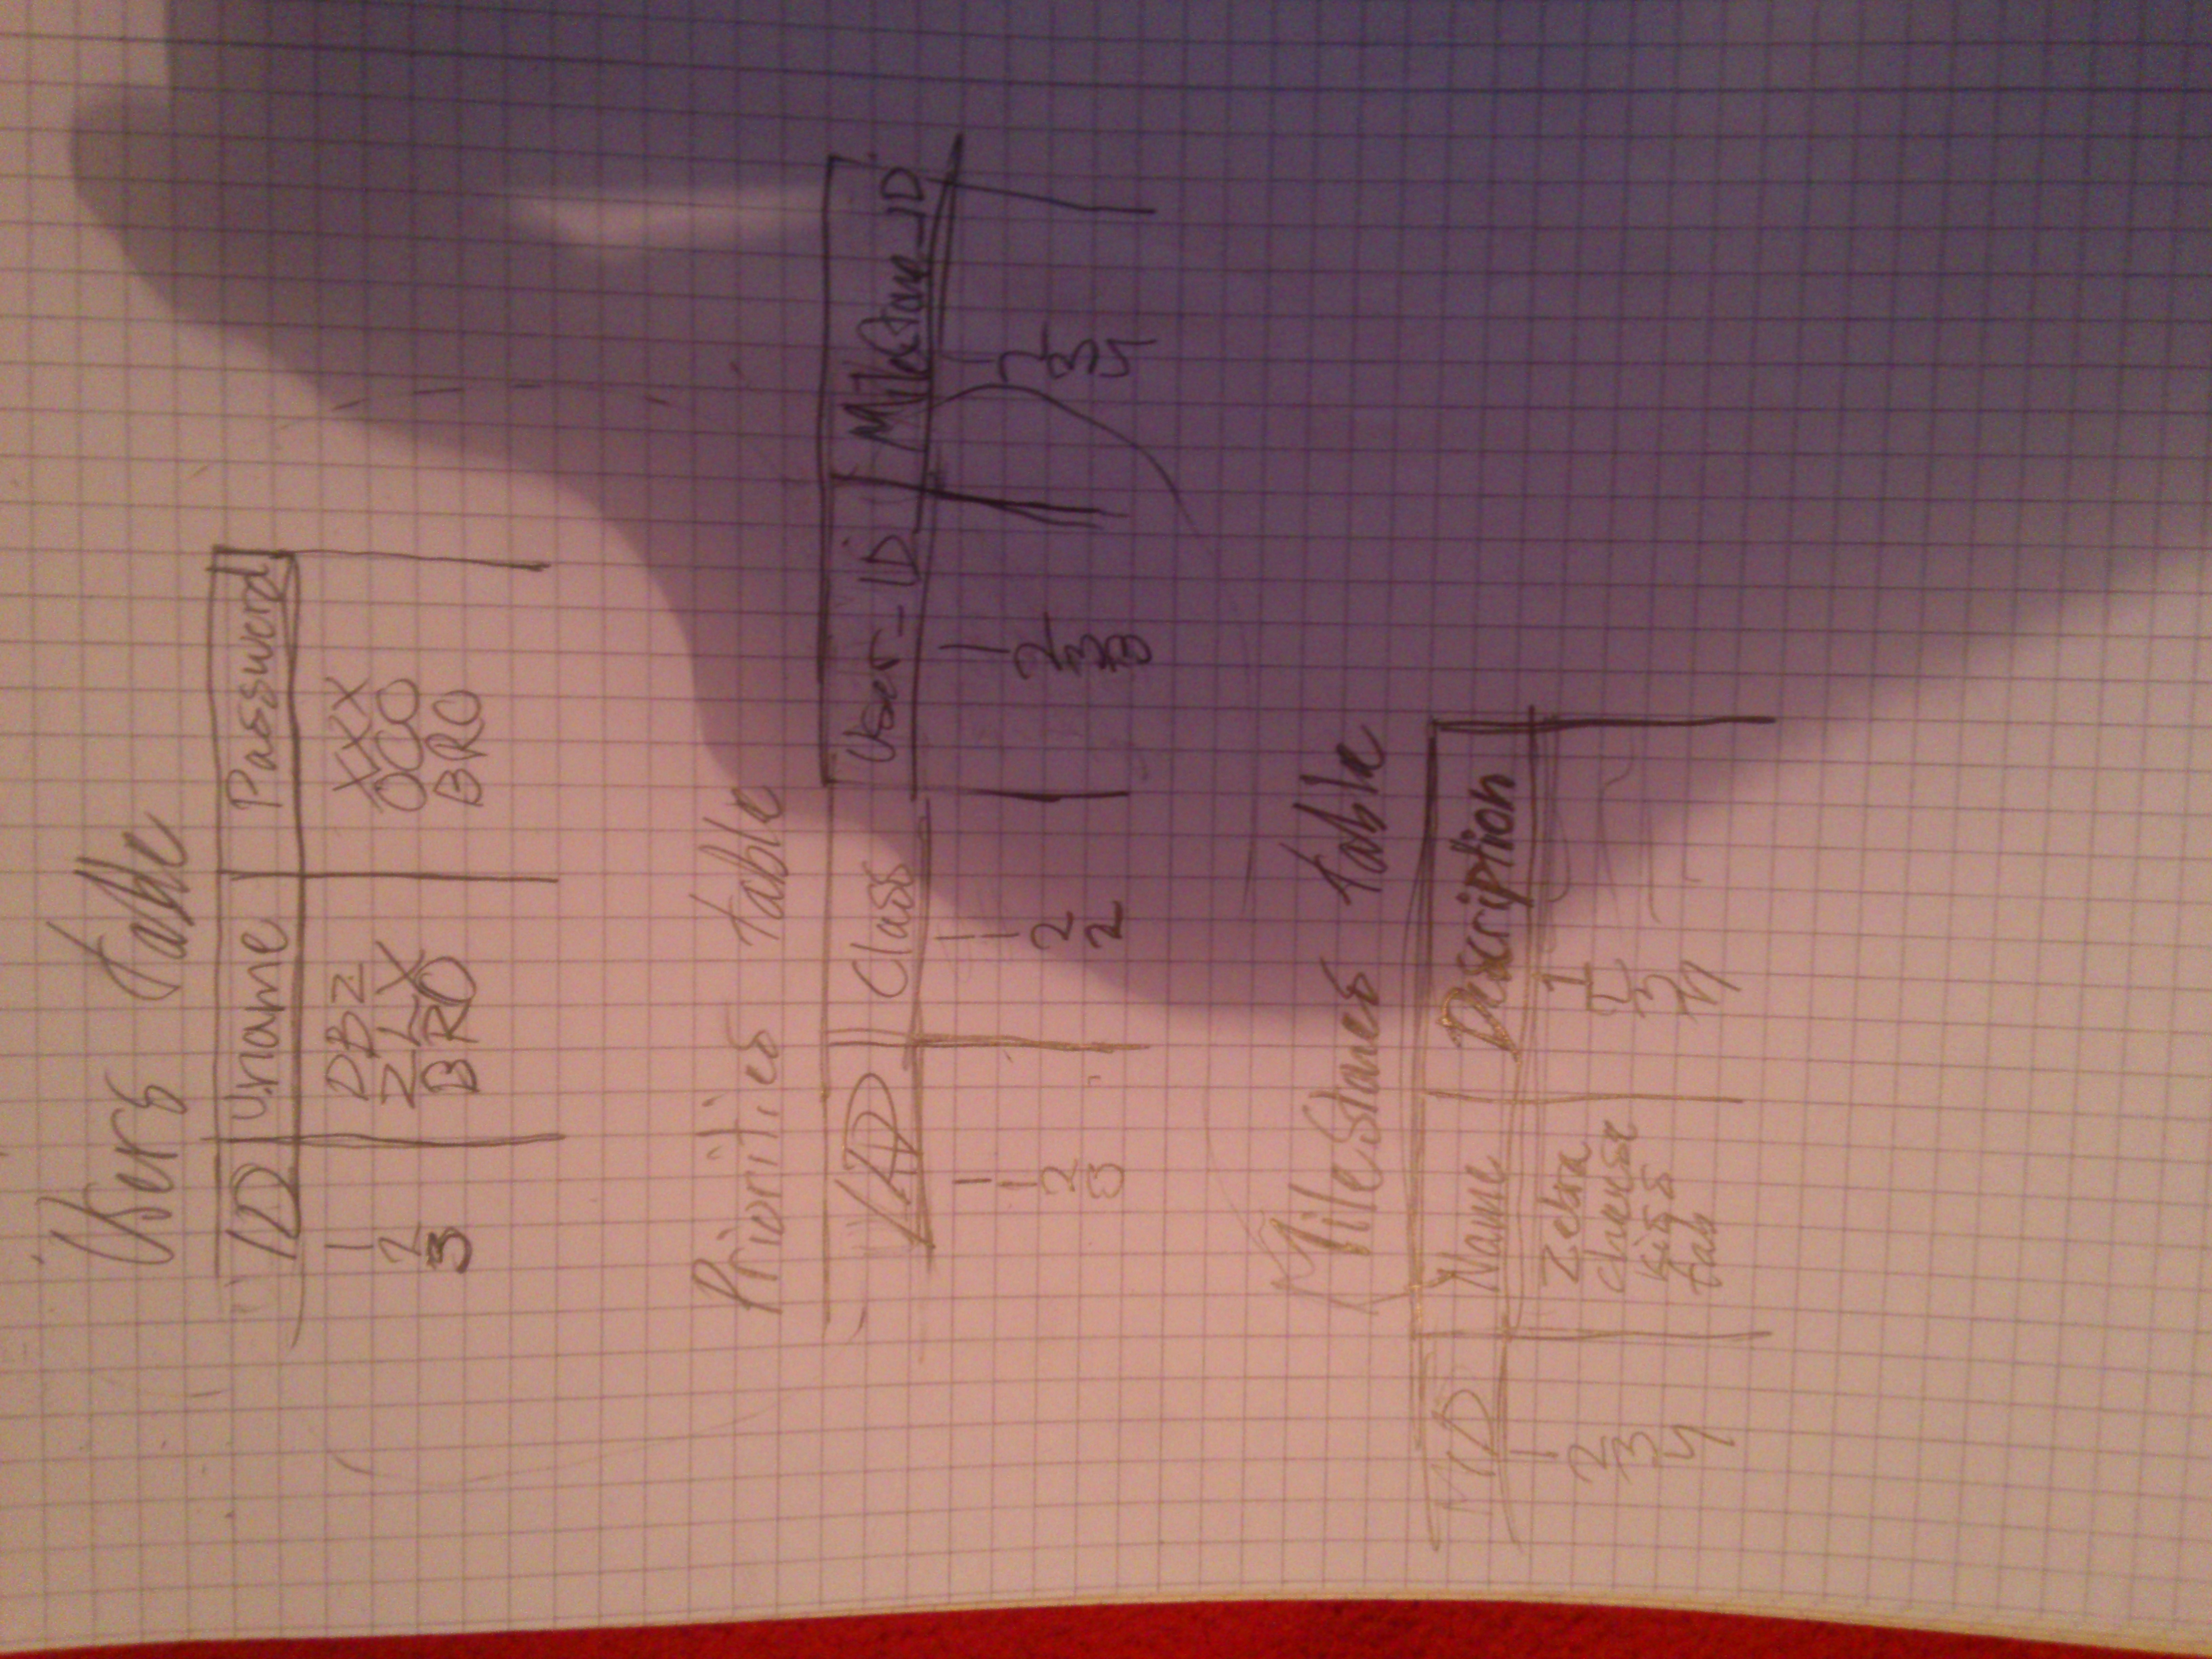 Users table
ID Uname Password
1 DBZ XXX
2 ZLX OCO
3 BRO BRO
Priorities table
ID Class User_ID Milestone_ID
1 1 1 1
2 2 2 2
3 2 3 3
Milestones table
ID Name Description
1 Zebra 1
2 cheese 2
3 kiss 3
4 tab 4